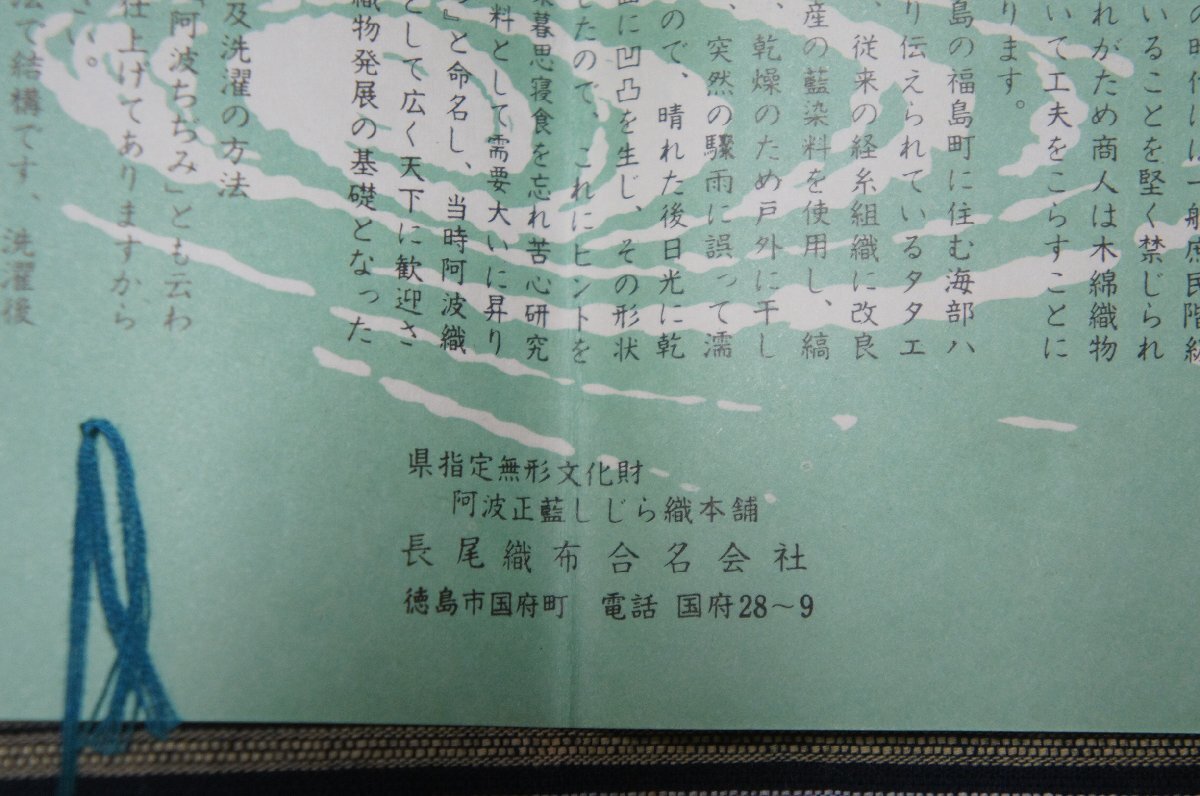 の時代には一般庶民階級
いることを堅く禁じられ
れがため商人は木綿織物
いて工夫をこらすことに
ります。
島の福島町に住む海部ハ
り伝えられているタタエ
、従来の経糸組織に改良
産の藍染料を使用し、縞
、乾燥のため戸外に干し
、突然の驟雨に誤って濡
ので、晴れた後日光に乾
面に凹凸を生じ、その形状
したので、これにヒントを
暮思寝食を忘れ苦心研究
料として需要大いに昇り
』と命名し、当時阿波織
として広く天下に歓迎さ
織物発展の基礎となった
及洗濯の方法
「阿波ちぢみ」とも云わ
仕上げてありますから
さい。
法で結構です、洗濯後
県指定無形文化財
阿波正藍しじら織本舗
長尾織布合名会社
徳島市国府町 電話 国府28～9